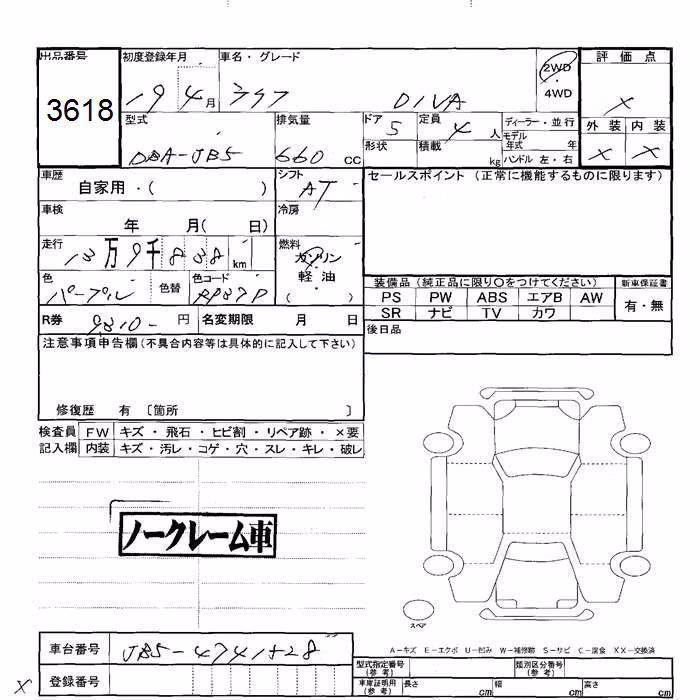 出品番号 初度登録年月 車名・グレード 評価点
3618 19 4月 ライフ DIVA 2WD 4WD X
型式 排気量 ドア 5 定員 4人 ディーラー・並行 外装 内装
DBA-JB5 660 CC 形状 積載 kg モデル年式 年 ハンドル 左・右 X X
車歴 自家用・( ) シフト AT セールスポイント (正常に機能するものに限ります)
車検 年 月( 日) 冷房
走行 13万9千838 km 燃料 ガソリン 軽油 ( )
色 パープル 色替 色コード RP37P 装備品 (純正品に限り〇をつけてください) 新車保証書
PS PW ABS エアB AW 有・無
SR ナビ TV カワ
R券 9810- 円 名変期限 月 日 後日品
注意事項申告欄 (不具合内容等は具体的に記入して下さい)
修復歴 有 〔箇所 〕
検査員 FW キズ・飛石・ヒビ割・リペア跡・×要
記入欄 内装 キズ・汚レ・コゲ・穴・スレ・キレ・破レ
ノークレーム車
スペア
A-キズ E-エクボ U-凹み W-補修跡 S-サビ C-腐食 XX-交換済
車台番号 JB5-4741528
型式指定番号 (参考) 類別区分番号 (参考)
X 登録番号 車庫証明用 (参考) 長さ cm 幅 cm 高さ cm